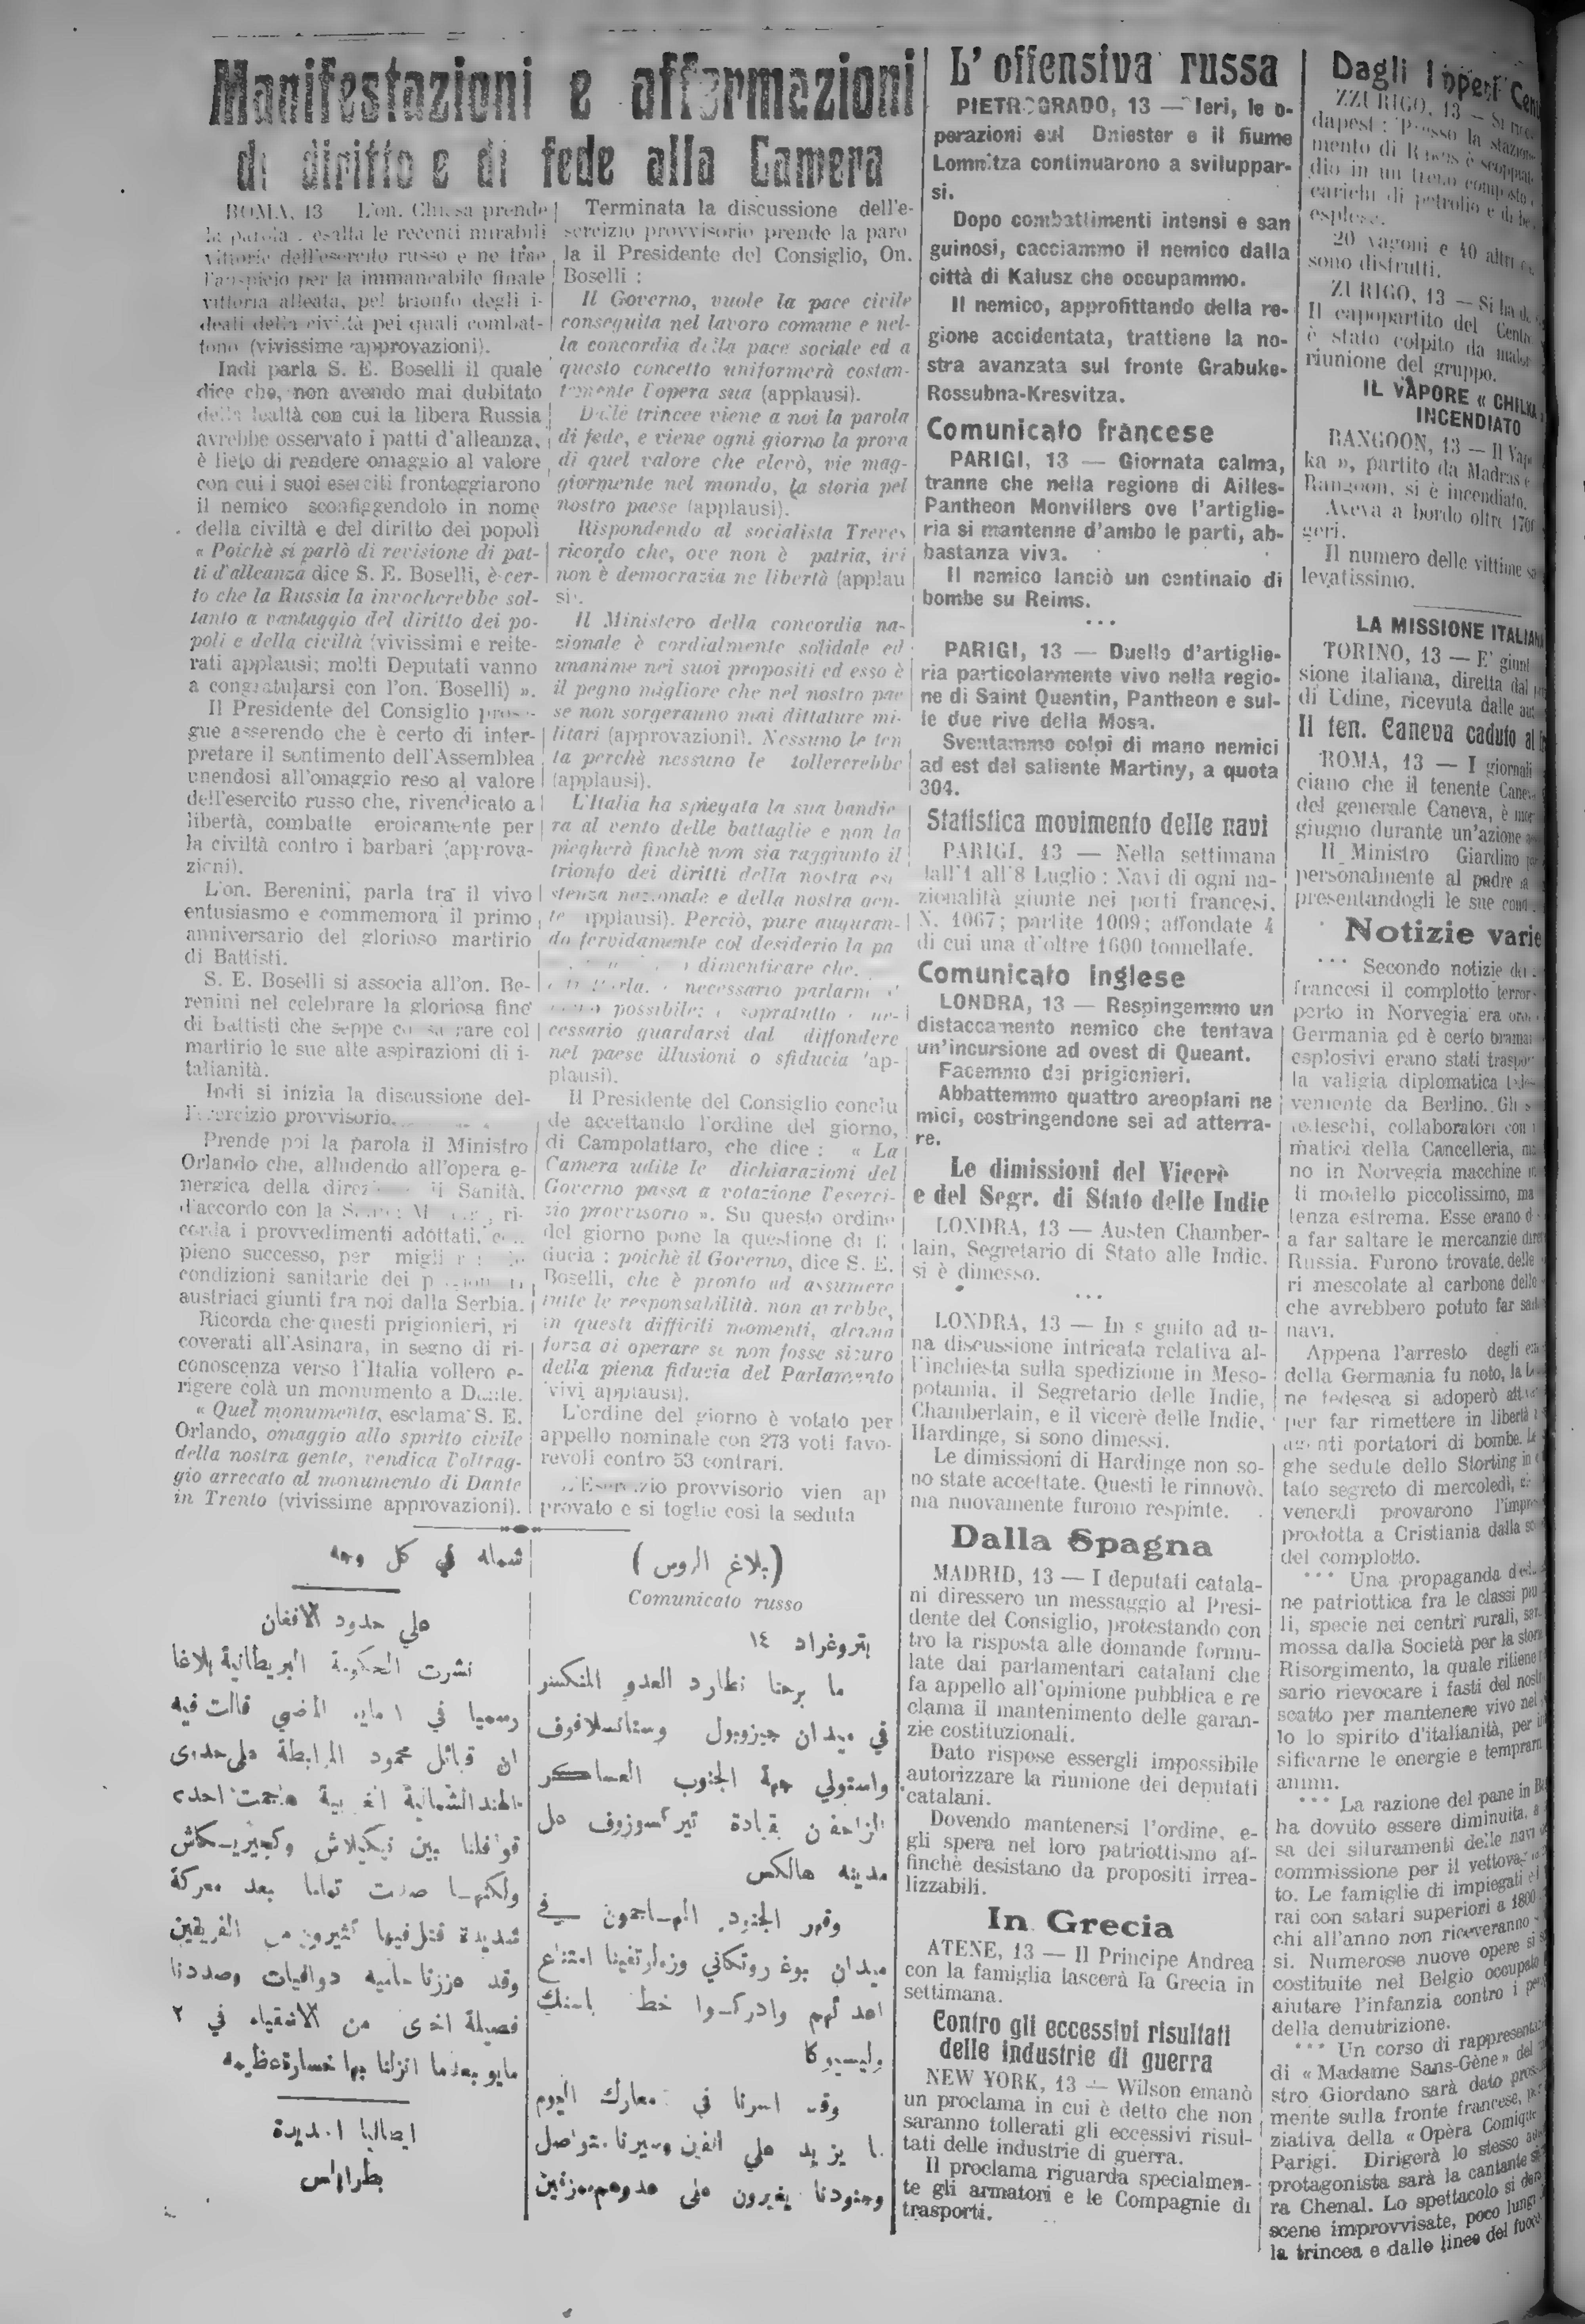 Manifestazioni e affermazioni
di diritto e di fede alla Camera
ROMA, 13 L'on. Chiesa prende
la parola esalta le recenti mirabili
vittorie dell'esercito russo e ne trae
l'auspicio per la immancabile finale
vittoria alleata, pel trionfo degli i-
deali della civiltà pei quali combat-
tono (vivissime approvazioni).
Indi parla S. E. Boselli il quale
dice che, non avendo mai dubitato
della lealtà con cui la libera Russia
avrebbe osservato i patti d'alleanza,
è lieto di rendere omaggio al valore
con cui i suoi eserciti fronteggiarono
il nemico sconfiggendolo in nome
della civiltà e del diritto dei popoli
« Poichè si parlò di revisione di pat-
ti d'alleanza dice S. E. Boselli, è cer-
to che la Russia la invocherebbe sol-
tanto a vantaggio del diritto dei po-
poli e della civiltà (vivissimi e reite-
rati applausi; molti Deputati vanno
a congratularsi con l'on. Boselli) ».
Il Presidente del Consiglio prose-
gue asserendo che è certo di inter-
pretare il sentimento dell'Assemblea
unendosi all'omaggio reso al valore
dell'esercito russo che, rivendicato a
libertà, combatte eroicamente per
la civiltà contro i barbari (approva-
zioni).
L'on. Berenini, parla tra il vivo
entusiasmo e commemora il primo
anniversario del glorioso martirio
di Battisti.
S. E. Boselli si associa all'on. Be-
renini nel celebrare la gloriosa fine
di Battisti che seppe col
martirio le sue alte aspirazioni di i-
talianità.
Indi si inizia la discussione del-
l'esercizio provvisorio.
Prende poi la parola il Ministro
Orlando che, alludendo all'opera e-
nergica della Sanità,
d'accordo con la ri-
corda i provvedimenti adottati,
pieno successo, per
condizioni sanitarie dei
austriaci giunti fra noi dalla Serbia.
Ricorda che questi prigionieri, ri
coverati all'Asinara, in segno di ri-
conoscenza verso l'Italia vollero e-
rigere colà un monumento a Dante.
« Quel monumento, esclama S. E.
Orlando, omaggio allo spirito civile
della nostra gente, vendica l'oltrag-
gio arrecato al monumento di Dante
in Trento (vivissime approvazioni).
Terminata la discussione dell'e-
sercizio provvisorio prende la paro
la il Presidente del Consiglio, On.
Boselli :
Il Governo, vuole la pace civile
conseguita nel lavoro comune e nel-
la concordia della pace sociale ed a
questo concetto uniformerà costan-
temente l'opera sua (applausi).
Dalle trincee viene a noi la parola
di fede, e viene ogni giorno la prova
di quel valore che elevò, vie mag-
giormente nel mondo, la storia pel
nostro paese (applausi).
Rispondendo al socialista Treves
ricordo che, ove non è patria, ivi
non è democrazia ne libertà (applau
si).
Il Ministero della concordia na-
zionale è cordialmente solidale ed
unanime nei suoi propositi ed esso è
il pegno migliore che nel nostro pae
se non sorgeranno mai dittature mi-
litari (approvazioni). Nessuno le ten
ta perchè nessuno le tollererebbe
(applausi).
L'Italia ha spiegata la sua bandie
ra al vento delle battaglie e non la
piegherà finchè non sia raggiunto il
trionfo dei diritti della nostra esi
stenza nazionale e della nostra gen-
te applausi). Perciò, pure auguran-
do fervidamente col desiderio la pa
dimenticare che.
necessario parlarne
possibile: sopratutto ne-
cessario guardarsi dal diffondere
nel paese illusioni o sfiducia (ap-
plausi).
Il Presidente del Consiglio conclu
de accettando l'ordine del giorno,
di Campolattaro, che dice : « La
Camera udite le dichiarazioni del
Governo passa a votazione l'eserci-
zio provvisorio ». Su questo ordine
del giorno pone la questione di fi
ducia : poichè il Governo, dice S. E.
Boselli, che è pronto ad assumere
tutte le responsabilità, non avrebbe,
in questi difficili momenti, alcuna
forza di operare se non fosse sicuro
della piena fiducia del Parlamento
(vivi applausi).
L'ordine del giorno è votato per
appello nominale con 273 voti favo-
revoli contro 53 contrari.
L'Esercizio provvisorio vien ap
provato e si toglie così la seduta
شماله في كل وجه
على حدود الافغان
نشرت الحكومة البريطانية بلاغا
رسميا في ١ مايه الماضي قالت فيه
ان قبائل محمود المرابطة على حدى
الهند الشمالية الغربية هاجمت احدى
قوافلنا بين
ولكنها صدت تماما بعد معركة
شديدة قتل فيها كثيرون من الفريقين
وقد عززنا حاميه دوافيات وصددنا
فصيلة اخرى من الاشقياء في ٢
مايو بعدما انزلنا بها خسارة عظيمه
ايطاليا الجديدة
بطرابلس
(بلاغ الروس)
Comunicato russo
بتروغراد ١٤
ما برحنا نطارد العدو المنكسر
في ميدان جيزوبول وستانسلافوف
واستولي جهة الجنوب العساكر
الزاحفن بقيادة تيركسوزوف على
مدينه هالكس
وقهر الجنود المهاجمون في
ميدان امتناع
اعدائهم وادركوا خط
وليسيوكا
وقد اسرنا في معارك اليوم
ما يزيد على الفين وسيرنا متواصل
وجنودنا يغيرون على عدوهم
L'offensiva russa
PIETROGRADO, 13 — Ieri, le o-
perazioni sul Dniester e il fiume
Lomnitza continuarono a sviluppar-
si.
Dopo combattimenti intensi e san
guinosi, cacciammo il nemico dalla
città di Kalusz che occupammo.
Il nemico, approfittando della re-
gione accidentata, trattiene la no-
stra avanzata sul fronte Grabuke-
Rossubna-Kresvitza.
Comunicato francese
PARIGI, 13 — Giornata calma,
tranne che nella regione di Ailles-
Pantheon Monvillers ove l'artiglie-
ria si mantenne d'ambo le parti, ab-
bastanza viva.
Il nemico lanciò un centinaio di
bombe su Reims.
...
PARIGI, 13 — Duello d'artiglie-
ria particolarmente vivo nella regio-
ne di Saint Quentin, Pantheon e sul-
le due rive della Mosa.
Sventammo colpi di mano nemici
ad est del saliente Martiny, a quota
304.
Statistica movimento delle navi
PARIGI, 13 — Nella settimana
dall'1 all'8 Luglio : Navi di ogni na-
zionalità giunte nei porti francesi,
N. 1067; partite 1009; affondate 4
di cui una d'oltre 1600 tonnellate.
Comunicato inglese
LONDRA, 13 — Respingemmo un
distaccamento nemico che tentava
un'incursione ad ovest di Queant.
Facemmo dei prigionieri.
Abbattemmo quattro areoplani ne
mici, costringendone sei ad atterra-
re.
Le dimissioni del Vicerè
e del Segr. di Stato delle Indie
LONDRA, 13 — Austen Chamber-
lain, Segretario di Stato alle Indie,
si è dimesso.
...
LONDRA, 13 — In s guito ad u-
na discussione intricata relativa al-
l'inchiesta sulla spedizione in Meso-
potamia, il Segretario delle Indie,
Chamberlain, e il vicerè delle Indie,
Hardinge, si sono dimessi.
Le dimissioni di Hardinge non so-
no state accettate. Questi le rinnovò,
ma nuovamente furono respinte.
Dalla Spagna
MADRID, 13 — I deputati catala-
ni diressero un messaggio al Presi-
dente del Consiglio, protestando con
tro la risposta alle domande formu-
late dai parlamentari catalani che
fa appello all'opinione pubblica e re
clama il mantenimento delle garan-
zie costituzionali.
Dato rispose essergli impossibile
autorizzare la riunione dei deputati
catalani.
Dovendo mantenersi l'ordine, e-
gli spera nel loro patriottismo af-
finchè desistano da propositi irrea-
lizzabili.
In Grecia
ATENE, 13 — Il Principe Andrea
con la famiglia lascerà la Grecia in
settimana.
Contro gli eccessivi risultati
delle industrie di guerra
NEW YORK, 13 — Wilson emanò
un proclama in cui è detto che non
saranno tollerati gli eccessivi risul-
tati delle industrie di guerra.
Il proclama riguarda specialmen-
te gli armatori e le Compagnie di
trasporti.
Dagli Imperi
ZZURIGO, 13 — Si
dapest : Presso la stazione
mento di è scoppiato
dio in un treno composto
carichi di petrolio e di
esplose.
20 vagoni e 40 altri
sono distrutti.
ZURIGO, 13 — Si ha da
Il capopartito del Centro
è stato colpito da malore
riunione del gruppo.
IL VAPORE « CHILKA »
INCENDIATO
RANGOON, 13 — Il Vap
ka », partito da Madras e
Rangoon, si è incendiato.
Aveva a bordo oltre 1700
geri.
Il numero delle vittime
levatissimo.
LA MISSIONE ITALIAN
TORINO, 13 — E' giunt
sione italiana, diretta dal
di Udine, ricevuta dalle
Il ten. Caneva caduto al
ROMA, 13 — I giornali
ciano che il tenente Caneva
del generale Caneva, è
giugno durante un'azione
Il Ministro Giardino
personalmente al padre
presentandogli le sue
Notizie varie
*** Secondo notizie dei
francesi il complotto terror
perto in Norvegia era
Germania ed è certo oramai
esplosivi erano stati
la valigia diplomatica
veniente da Berlino. Gli
tedeschi, collaboratori con
matici della Cancelleria,
no in Norvegia macchine
di modello piccolissimo, ma
tenza estrema. Esse erano
a far saltare le mercanzie
Russia. Furono trovate delle
ri mescolate al carbone delle
che avrebbero potuto far
navi.
Appena l'arresto degli
della Germania fu noto, la
ne tedesca si adoperò
per far rimettere in libertà
agenti portatori di bombe. Le
ghe sedute dello Storting in
tato segreto di mercoledì,
venerdì provarono
prodotta a Cristiania dalla
del complotto.
*** Una propaganda
ne patriottica fra le classi
li, specie nei centri rurali,
mossa dalla Società per la
Risorgimento, la quale ritiene
sario rievocare i fasti del
scatto per mantenere vivo nel
lo lo spirito d'italianità, per
sificarne le energie e temprarne
animi.
*** La razione del pane in
ha dovuto essere diminuita, a
sa dei siluramenti delle navi
commissione per il vettova-
to. Le famiglie di impiegati
rai con salari superiori a 1800
chi all'anno non riceveranno
si. Numerose nuove opere si
costituite nel Belgio occupato
aiutare l'infanzia contro i
della denutrizione.
*** Un corso di
di « Madame Sans-Gène » del
stro Giordano sarà dato
mente sulla fronte francese,
ziativa della « Opèra Comique
Parigi. Dirigerà lo stesso
protagonista sarà la cantante
ra Chenal. Lo spettacolo si
scene improvvisate, poco lungi
la trincea e dalle linee del fuoco